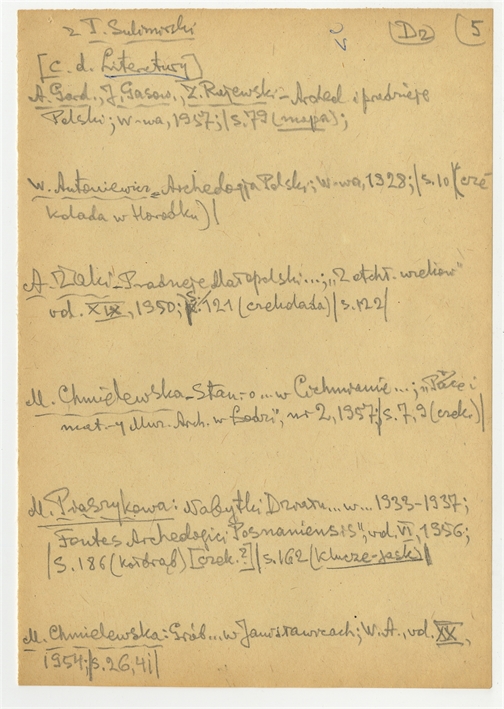 z T. Sulimirski D2 5
[c.d. Literatury]
A. Gard., J. Gąsow., Z. Rajewski - Archeol i pradzieje
Polski; W-wa, 1957; |s. 79 (mapa);
W. Antoniewicz - Archeologja Polski; W-wa, 1928; |s. 10 (cze
kolada w Horodku)|
A. Żaki - Pradzieje Małopolski...; "Z otchł. wieków"
vol. XIX, 1950; s. 121 (czekolada) |s. 122|
M. Chmielewska - Stan-o... w Cichmianie...; "Prace i
mat-y Muz. Arch. w Łodzi", nr 2, 1957; |s. 7, 9 (czek.)|
M. Piaszykowa: Nabytki Działu... w... 1933-1937;
Fontes Archeologici Posnaniensis", vol. VI, 1956;
|s. 186 (Kołdrąb) [czek.?] |s. 162 (Klucze-jask)|
M. Chmielewska: Grób... w Janisławicach; W.A., vol. XX,
1954; |s. 26, 41|